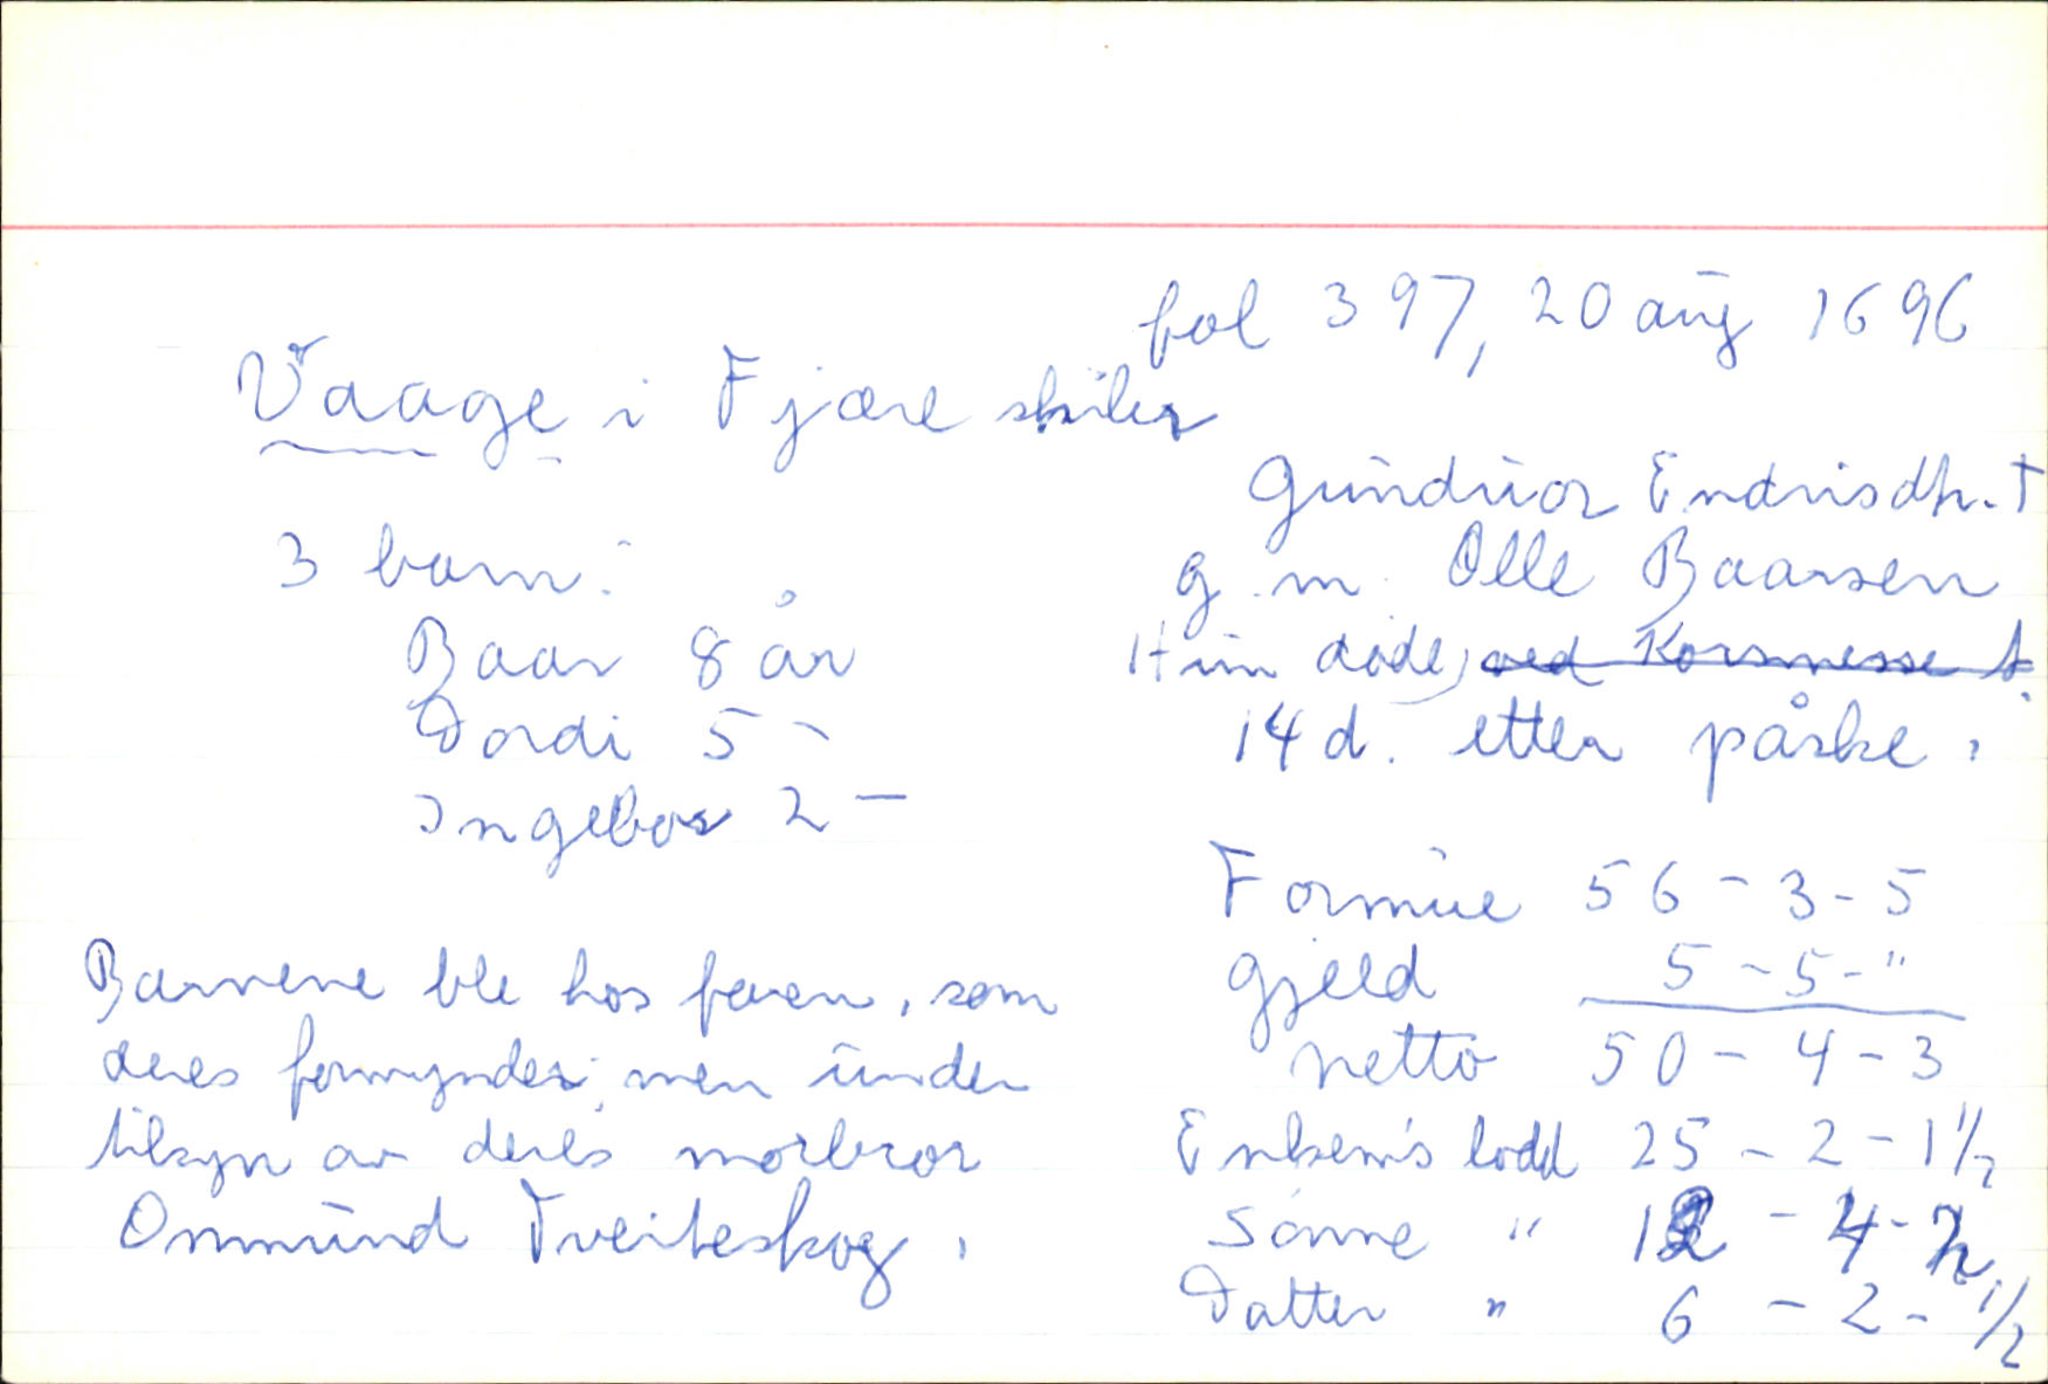 fol 397, 20 aug 1696
Vaage i Fjære skiler
Gunduor Endrisdtr. †
3 barn:
g. m. Olle Baarsen
Baar 8 år
Hun døde, ved Korsmesse t.
Dordi 5 -
14 d. etter påske.
Ingebor 2 -
Formue 56 - 3 - 5
Barnene ble hos faren, som
gjeld 5 - 5 - "
deres formynder, men under
netto 50 - 4 - 3
tilsyn av deres morbror
Enkem's lodd 25 - 2 - 1 1/2
Ommund Tveiteskog.
Sønne " 12 - 4 -
Datter " 6 - 2 - 1/2